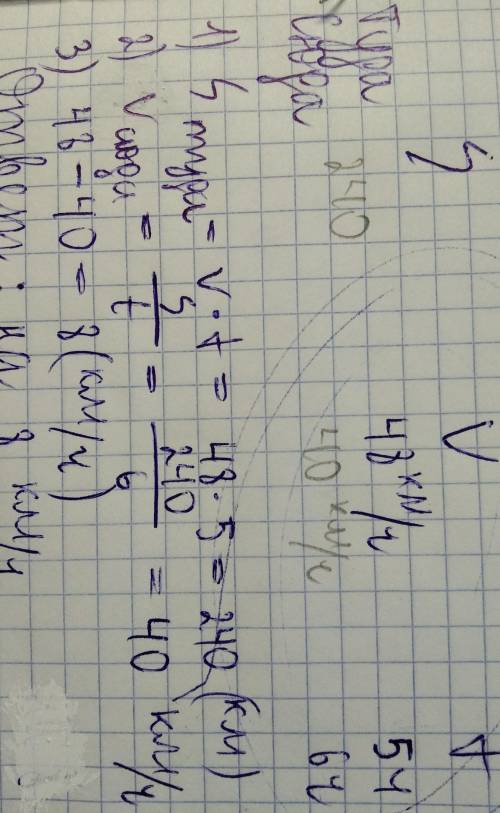 S V t
Туда 48 км/ч 5ч
Сюда 240 40 км/ч 6ч
1) S туда = V · t = 48 · 5 = 240 (км)
2) V сюда = S/t = 240/6 = 40 км/ч
3) 48 - 40 = 8 (км/ч)
Ответ: на 8 км/ч